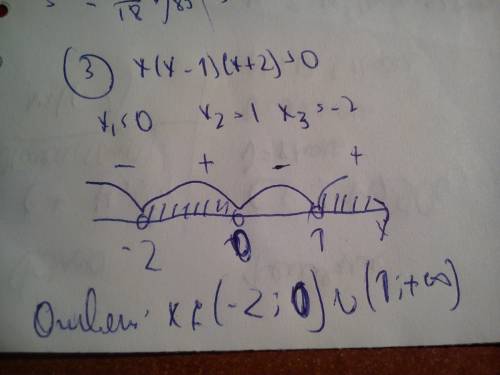 ③ x(x-1)(x+2)>0
x₁=0 x₂=1 x₃=-2
- + - +
-2 0 1 x
Ответ: x∈(-2;0)∪(1;+∞)